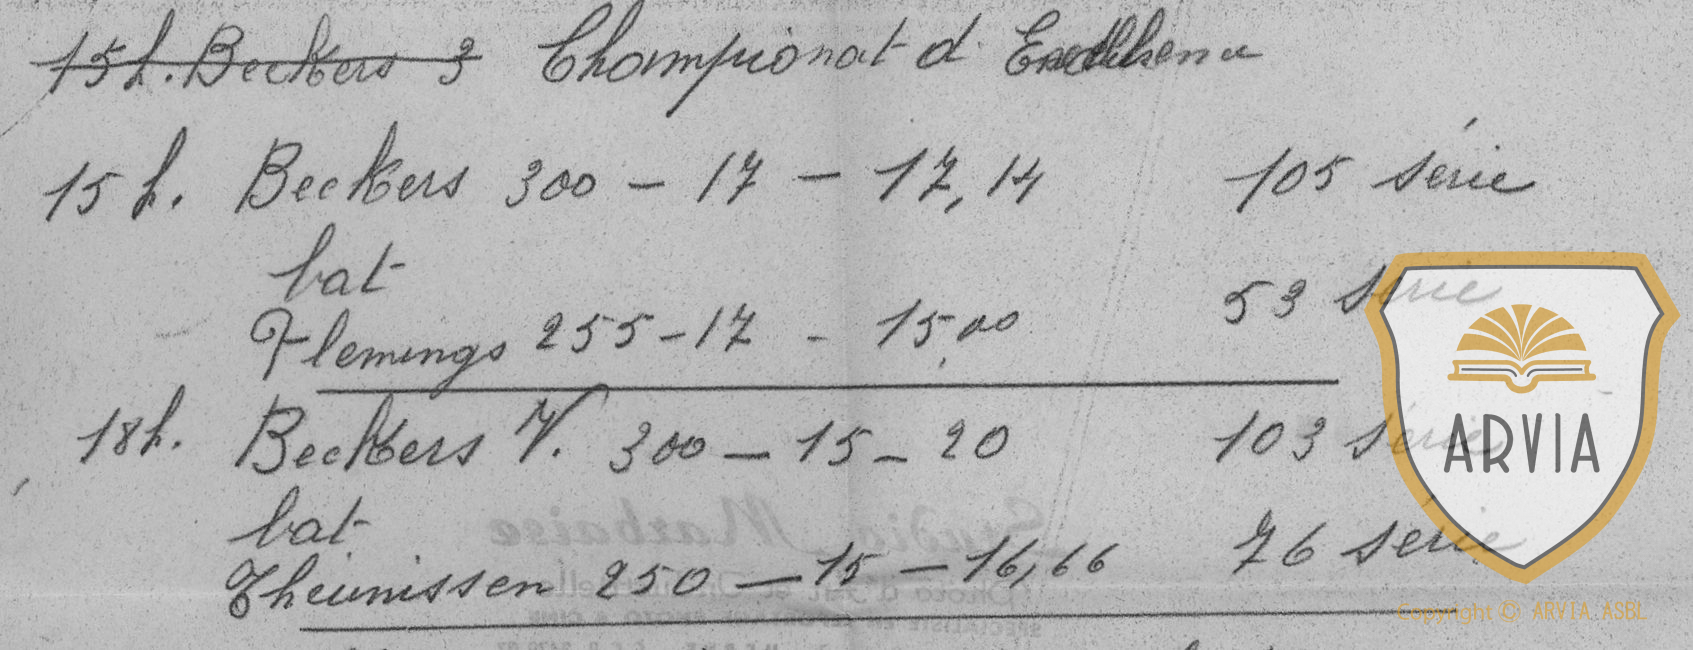 15h. Beckers 3 Championat d'Excellence
15 h. Beckers 300 – 17 – 17,14 105 série
bat
53 serie
Flemings 255 – 17 – 15,00
18h. Beckers V. 300 – 15 – 20 103 serie
bat
76 serie
Theunissen 250 – 15 – 16,66
ARVIA
Copyright © ARVIA ASBL